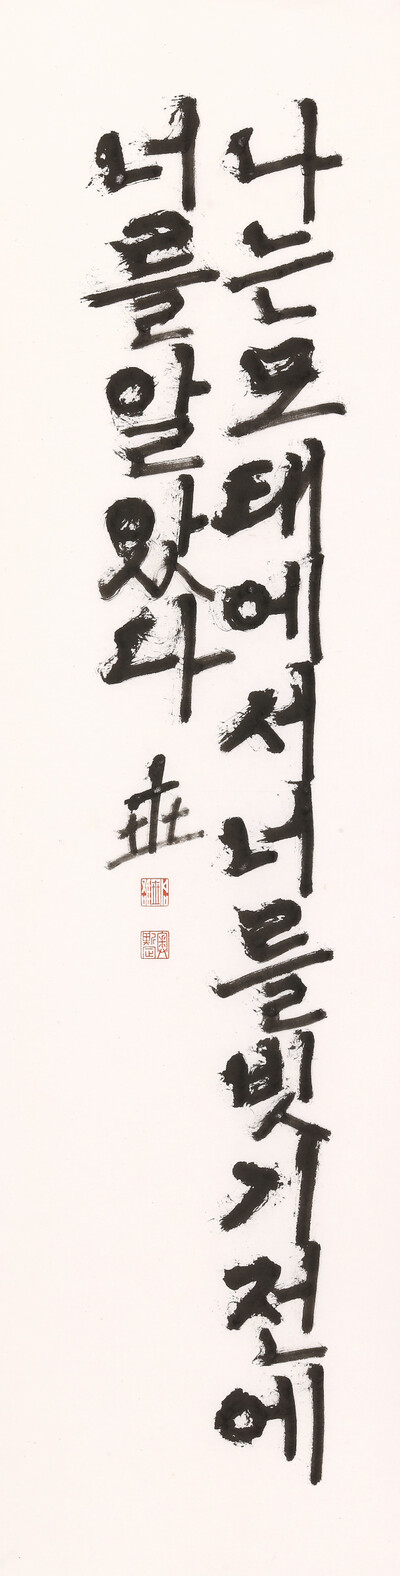 나는모태에서너를빚기전에
너를알았다